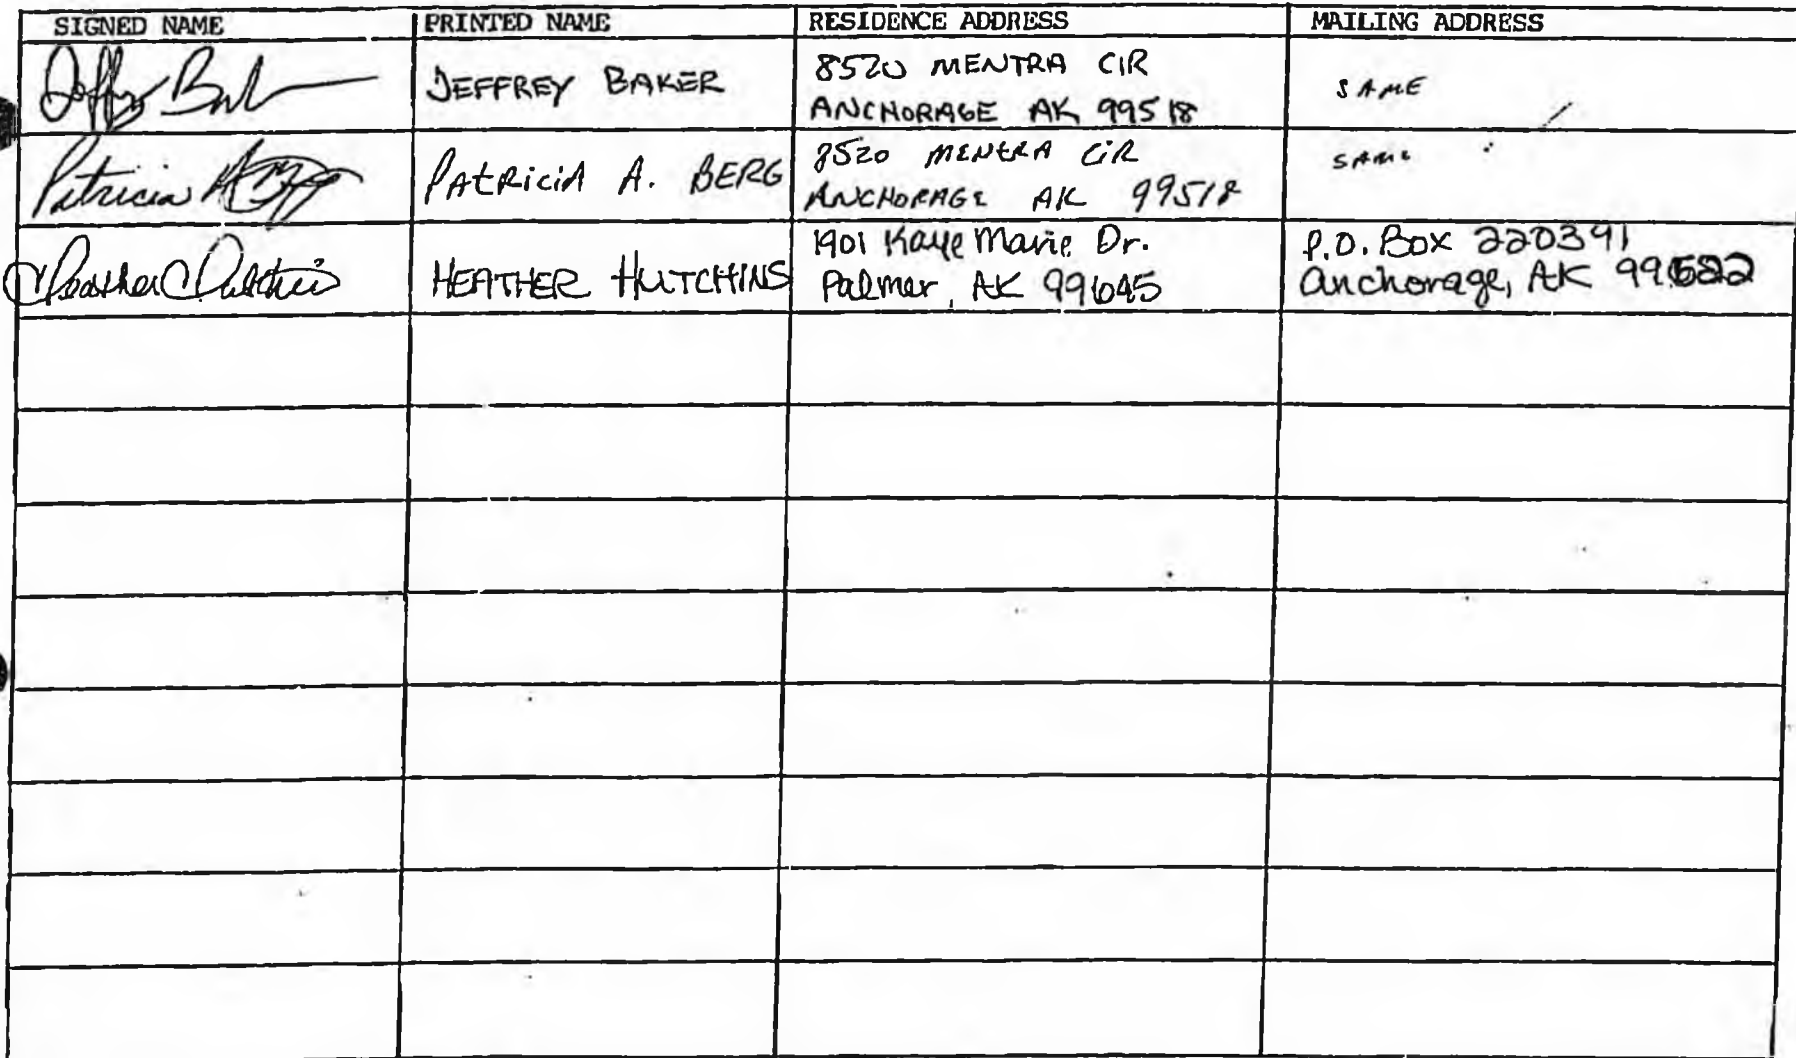 SIGNED NAME PRINTED NAME RESIDENCE ADDRESS MAILING ADDRESS
Jeffrey Baker JEFFREY BAKER 8520 MENTRA CIR SAME
ANCHORAGE AK 99518
Patricia A Berg PATRICIA A. BERG 8520 MENTRA CIR SAME
ANCHORAGE AK 99518
Heather Hutchins HEATHER HUTCHINS 1901 Kaye Marie Dr. P.O. Box 220391
Palmer, AK 99645 Anchorage, AK 99522